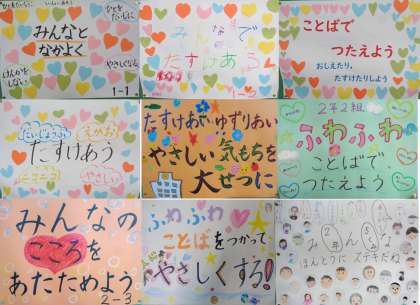 ひとをたいせつに
みんなと
なかよく
けんかを
しない
やさしくする
1-1
みんなで
たすけあう
ことばで
つたえよう
おしえたり、
たすけたりしよう
だいじょうぶ
えがお
たすけあう
ニコニコ
やさしい
たすけあい ゆずりあい
やさしい気もちを
大せつに
2年2組
ふわふわ
ことばで
つたえよう
みんなの
こころを
あたためよう
2-3
ふわふわ
ことばをつかって
やさしくする!
ほんとうに ステキだね